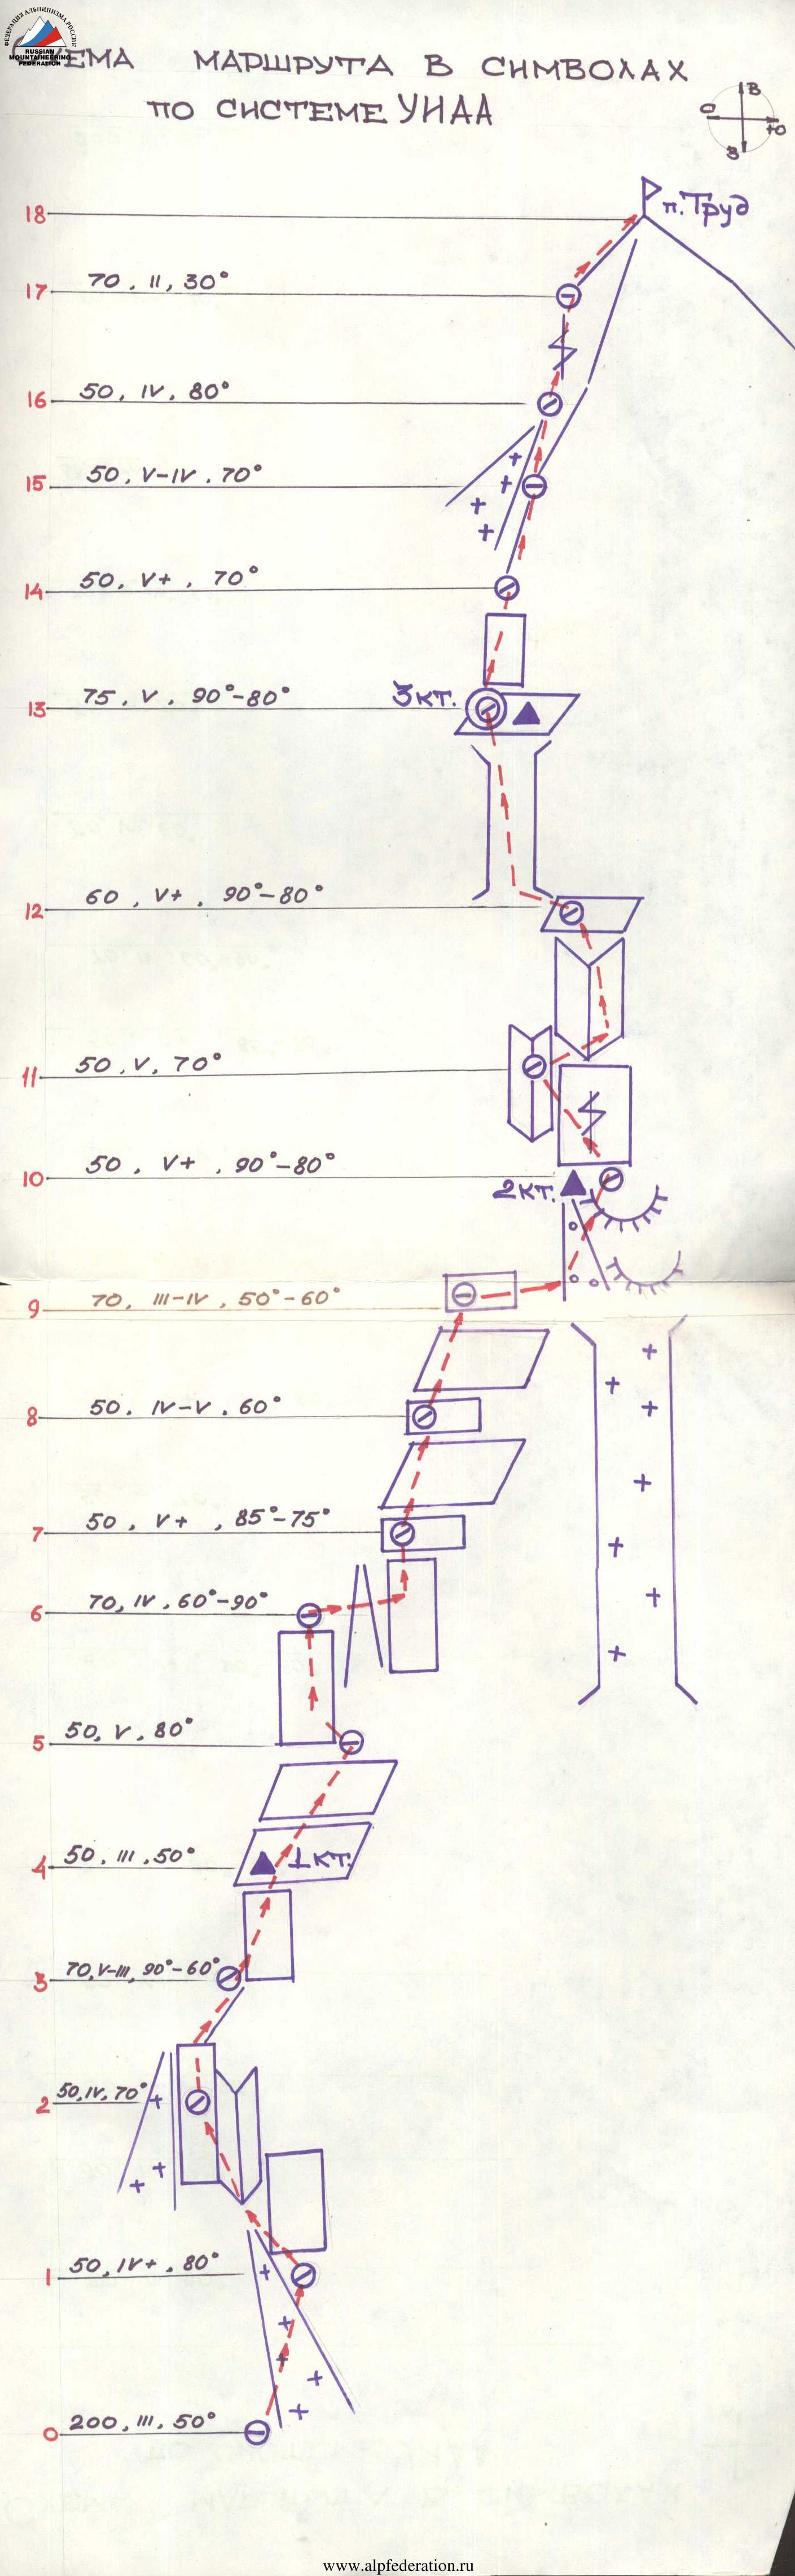 ФЕДЕРАЦИЯ АЛЬПИНИЗМА РОССИИ
RUSSIAN
MOUNTAINEERING
FEDERATION
СХЕМА МАРШРУТА В СИМВОЛАХ
ПО СИСТЕМЕ УИАА
В
Ю
З
18 п. Труд
70, II, 30°
17
50, IV, 80°
16
50, V-IV, 70°
15
50, V+, 70°
14
75, V, 90°-80° 3 кт.
13
60, V+, 90°-80°
12
50, V, 70°
11
50, V+, 90°-80°
10 2 кт.
70, III-IV, 50°-60°
9
50, IV-V, 60°
8
50, V+, 85°-75°
7
70, IV, 60°-90°
6
50, V, 80°
5
50, III, 50° 1 кт.
4
70, V-III, 90°-60°
3
50, IV, 70°
2
50, IV+, 80°
1
200, III, 50°
0
www.alpfederation.ru